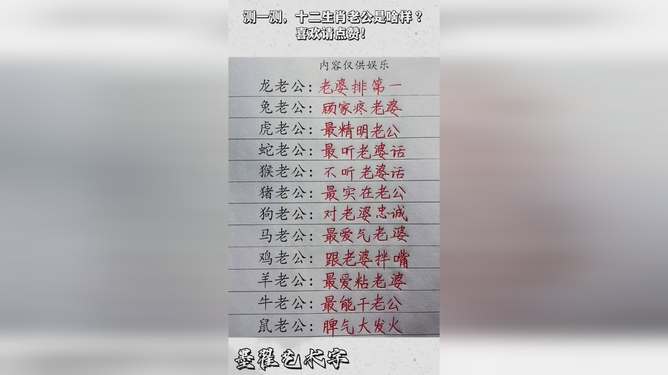 测一测，十二生肖老公是啥样？
喜欢请点赞！
内容仅供娱乐
龙老公：老婆排第一
兔老公：顾家疼老婆
虎老公：最精明老公
蛇老公：最听老婆话
猴老公：不听老婆话
猪老公：最实在老公
狗老公：对老婆忠诚
马老公：最爱气老婆
鸡老公：跟老婆拌嘴
羊老公：最爱粘老婆
牛老公：最能干老公
鼠老公：脾气大发火
墨翟艺术字